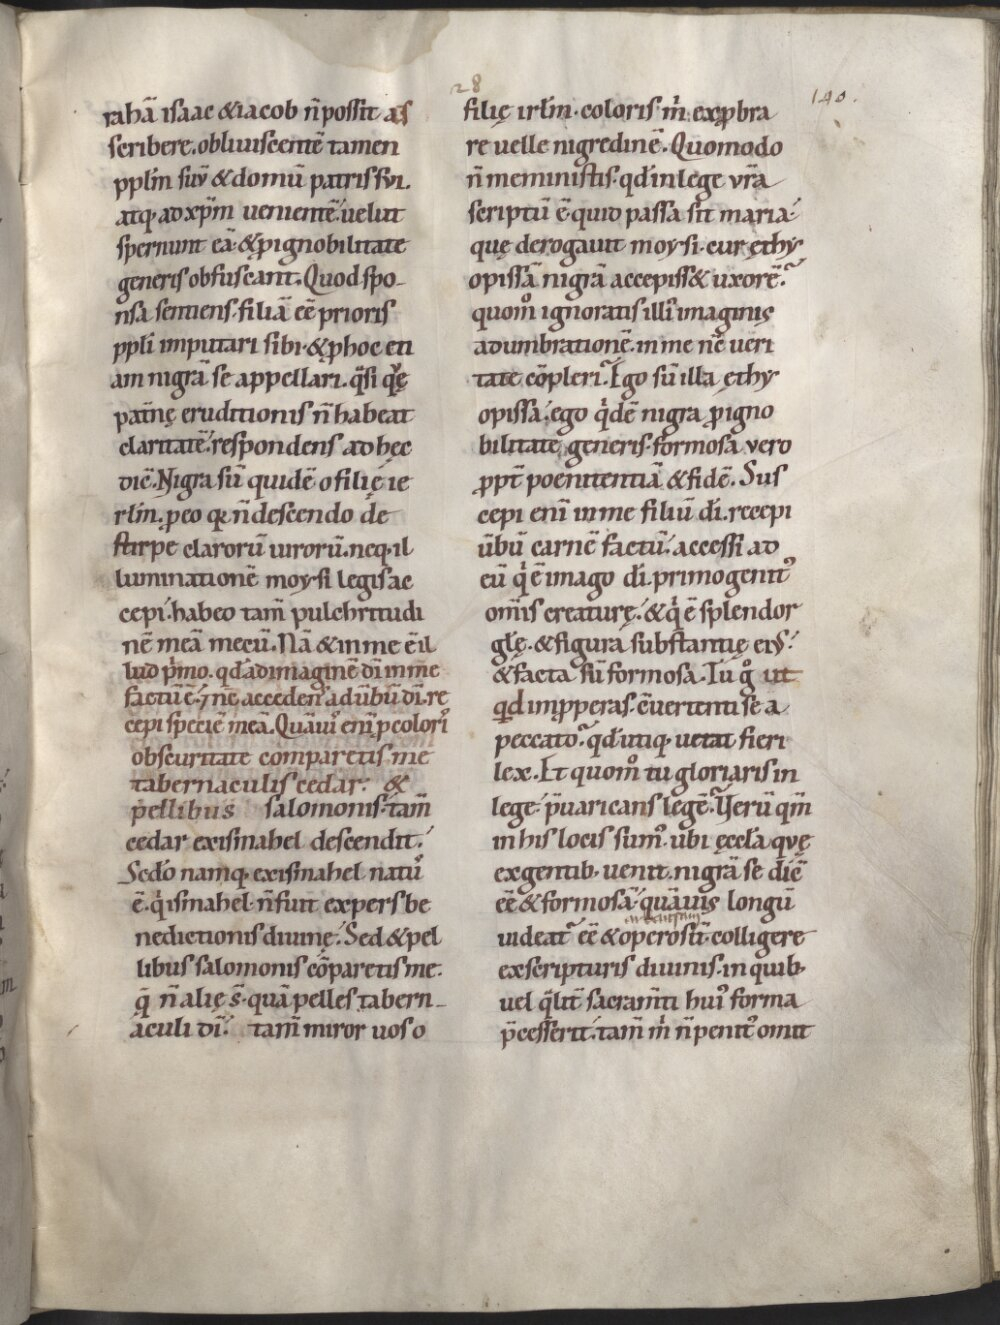 28
140.
rahā isaac & iacob n̄ possit as
scribere. obliviscentē tamen
pplm̄ suū & domū patris sui.
atq; ad xp̄m venientē. velut
spernunt eā. & p ignobilitate
generis obfuscant. Quod spo-
nsa sentiens. filiā eē prioris
ppli imputari sibi. & p hoc eti
am nigrā se appellari. q̄si quę
patnę eruditionis n̄ habeat
claritatē. respondens ad hęc
dic̄. Nigra sū quidē o filię ie
rlm̄. p eo qd n̄ descendo de
stirpe clarorū virorū. neq; il
luminationē moysi legis ac
cepi. habeo tam̄ pulchritudi
nē meā mecū. Nā & in me ē il
lud p̄mo. qd ad imaginē dī in me
factū ē. & nc̄ accedens ad ūbū dī. re
cepi speciē meā. Quāvis eni p coloris
obscuritate comparetis me
tabernaculis cedar. &
pellibus salomonis. tam̄
cedar ex ismahel descendit.
Scdo namq; ex ismahel natus
ē. q̄ ismahel n̄ fuit expers be
nedictionis divinę. Sed & pel
libus salomonis cōparetis me.
q̄ n̄ alię s̄. quā pelles tabern-
aculi dī. tam̄ miror vos o
filię irlm̄. coloris m̄ exprobra
re velle nigredinē. Quomodo
n̄ meministis. qd in lege vr̄a
scriptū ē. quid passa sit maria.
quę derogavit moysi. cur ęthy
opissā nigrā accepiss& uxorē.
quom̊ ignoratis illi imaginis
adumbrationē. in me nc̄ veri
tate cōpleri. Ego sū illa ęthy
opissa. ego q̄dē nigra p igno
bilitate generis. formosa vero
ppt̄ poenitentiā & fidē. Sus
cepi eni in me filiū dī. recepi
ūbū carnē factū. accessi ad
eū q̄ ē imago dī. primogenitus
omīs creaturę. & q̄ ē splendor
glę. & figura substantię eius.
& facta sū formosa. Tu g̊ ut
qd improperas. cvertenti se a
peccato. qd utiq; vetat fieri
lex. Et quom̊ tu gloriaris in
lege. p̄varicans legē. Verū qm̄
in his locis sumus. ubi ęccla quę
ex gentib; venit. nigrā se dic̄
eē & formosā. quāvis longū
videat eē & operosū. colligere
ex scripturis divinis. in quib;
vel q̄lit sacram̄ti huius forma
p̄cesserit. tam̄ m̄ n̄ penitus omit